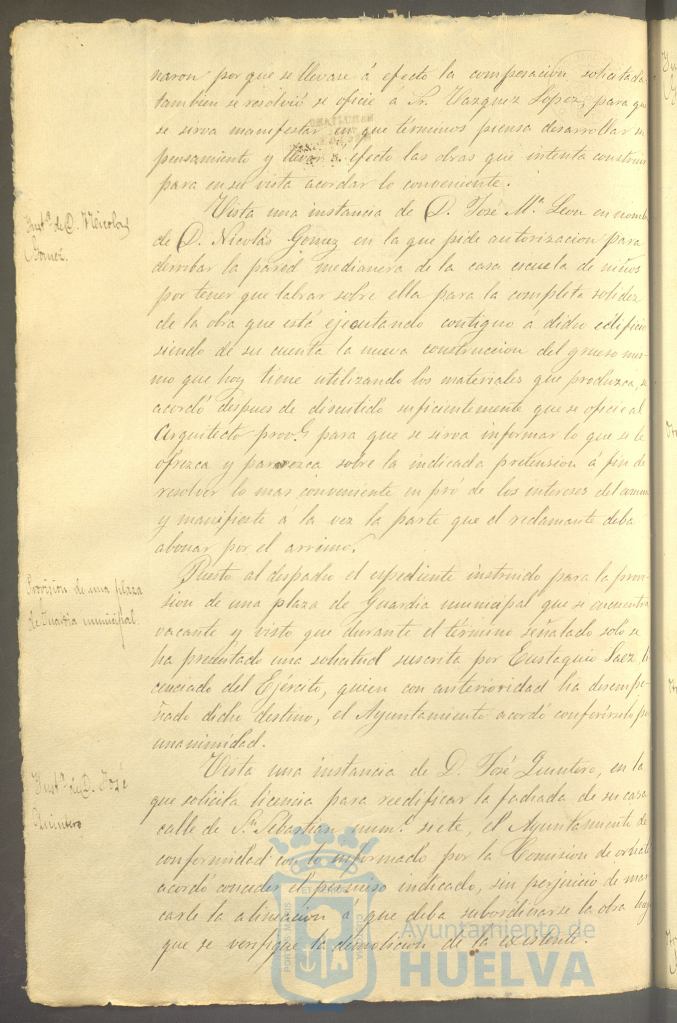 naron por que se llevase á efecto la composicion solicitada
tambien se resolvió se oficie á Sr. Vazquez Lopez, para que
se sirva manifestar en que términos piensa desarrollar su
pensamiento y llevar á efecto las obras que intenta construir
para en su vista acordar lo conveniente.
Inst.ª de D. Nicolas
Gomez.
Vista una instancia de D. José M.ª Leon en nomb
de D. Nicolás Gomez en la que pide autorizacion para
derribar la pared medianera de la casa escuela de niños
por tener que labrar sobre ella para la completa solidez
de la obra que está ejecutando contiguo á dicho edificio
siendo de su cuenta la nueva construccion del grueso mis-
mo que hoy tiene utilizando los materiales que produzca, se
acordó despues de discutido suficientemente que se oficie al
Arquitecto prov.l para que se sirva informar lo que se le
ofrezca y parezca sobre la indicada pretension á fin de
resolver lo mas conveniente en pró de los intereses del comun
y manifieste á la vez la parte que el reclamante deba
abonar por el arrimo.
Provision de una plaza
de Guardia municipal.
Puesto al despacho el espediente instruido para la provi-
sion de una plaza de Guardia municipal que se encuentra
vacante y visto que durante el término señalado solo se
ha presentado una solicitud suscrita por Eustaquio Saez li
cenciado del Ejército, quien con anterioridad ha desempe-
ñado dicho destino, el Ayuntamiento acordó conferírselo por
unanimidad.
Inst.ª de D. José
Quintero
Vista una instancia de D. José Quintero, en la
que solicita licencia para reedificar la fachada de su casa
calle de S.n Sebastian num.º siete, el Ayuntamiento de
conformidad con lo informado por la Comision de ornato
acordó conceder el permiso indicado, sin perjuicio de mar
carle la alineacion á que deba subordinarse la obra luego
que se verifique la demolicion de la existente.
Ayuntamiento de
HUELVA